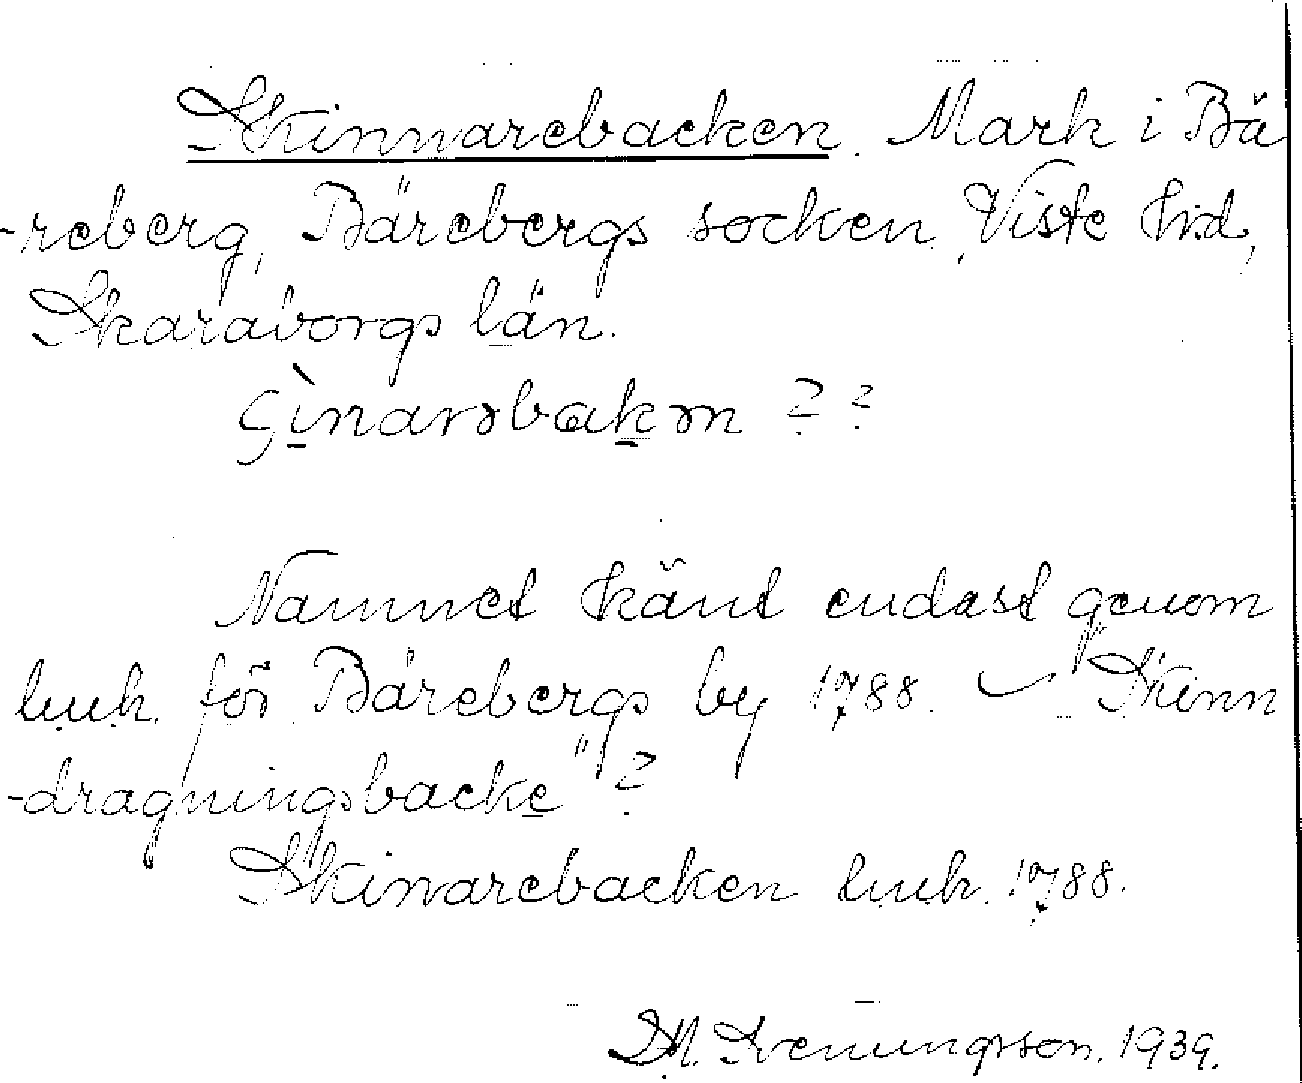 Skinnarebacken. Mark i Bä
-reberg, Bärebergs socken, Viste hd,
Skaraborgs län.
Namnet känt endast genom
luuh. för Bärebergs by 1788. "Skinn
-dragningsbacke"?
Skinarebacken luuh. 1788.
1939.